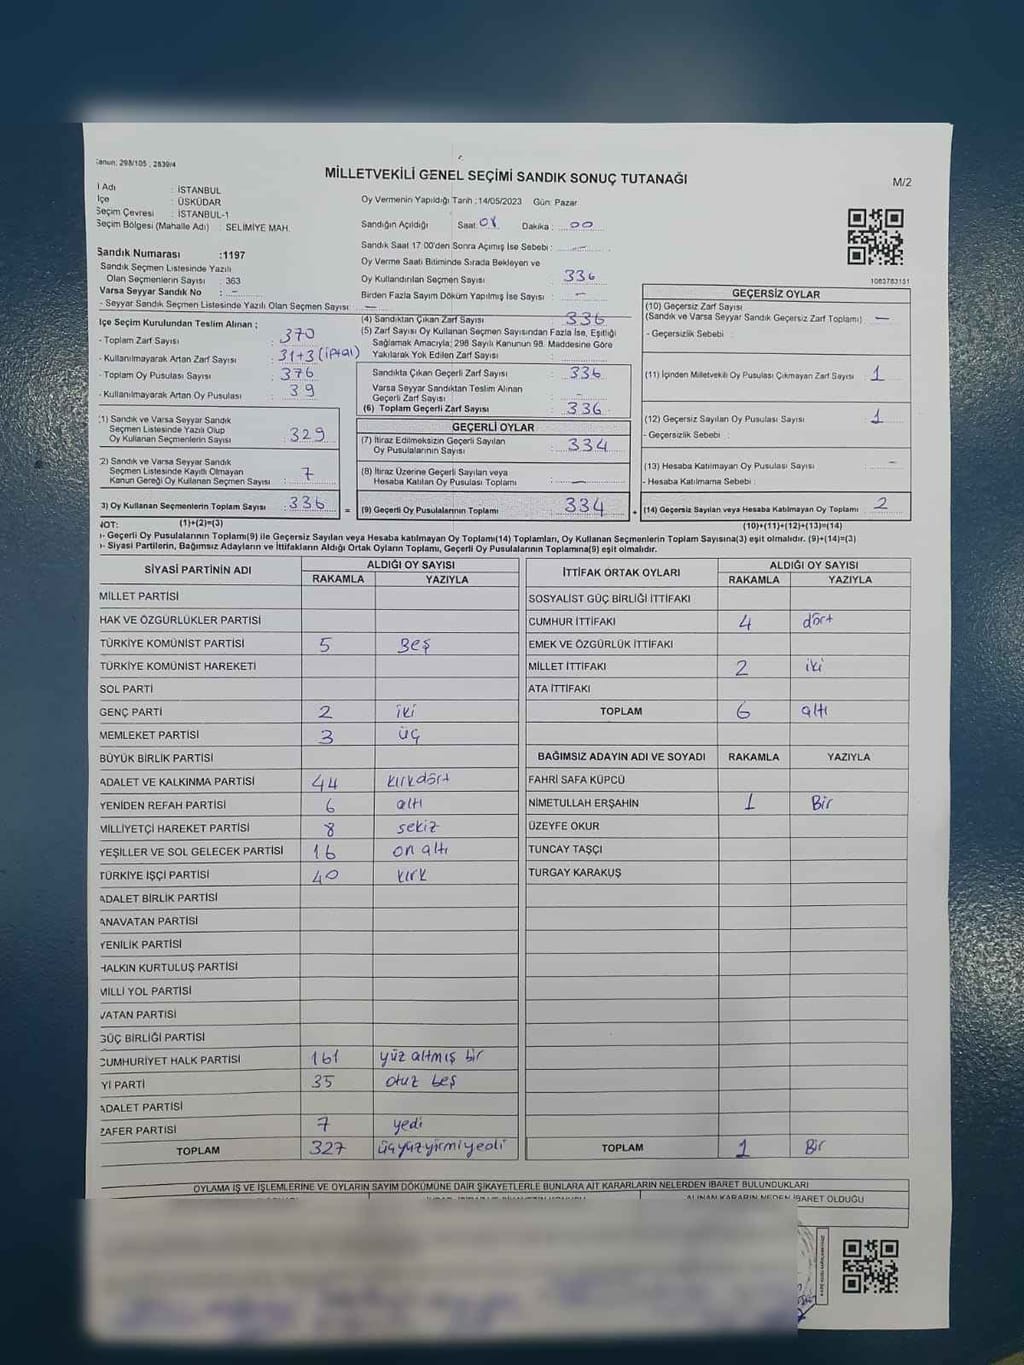 Kanun: 298/105 , 2839/4
MİLLETVEKİLİ GENEL SEÇİMİ SANDIK SONUÇ TUTANAĞI
M/2
l Adı : İSTANBUL
lçe : ÜSKÜDAR
Seçim Çevresi : İSTANBUL-1
Seçim Bölgesi (Mahalle Adı) : SELİMİYE MAH.
Oy Vermenin Yapıldığı Tarih :14/05/2023 Gün: Pazar
Sandığın Açıldığı Saat: 08 Dakika : 00
Sandık Saat 17:00'den Sonra Açımış İse Sebebi : -
Oy Verme Saati Bitiminde Sırada Bekleyen ve
Oy Kullandırılan Seçmen Sayısı : 336
Birden Fazla Sayım Döküm Yapılmış İse Sayısı : -
Sandık Numarası :1197
Sandık Seçmen Listesinde Yazılı
Olan Seçmenlerin Sayısı : 363
Varsa Seyyar Sandık No : -
- Seyyar Sandık Seçmen Listesinde Yazılı Olan Seçmen Sayısı : -
1063783151
İlçe Seçim Kurulundan Teslim Alınan ;
- Toplam Zarf Sayısı : 370
- Kullanılmayarak Artan Zarf Sayısı : 31+3 (iptal)
- Toplam Oy Pusulası Sayısı : 376
- Kullanılmayarak Artan Oy Pusulası : 39
(1) Sandık ve Varsa Seyyar Sandık
Seçmen Listesinde Yazılı Olup
Oy Kullanan Seçmenlerin Sayısı : 329
2) Sandık ve Varsa Seyyar Sandık
Seçmen Listesinde Kayıtlı Olmayan
Kanun Gereği Oy Kullanan Seçmen Sayısı : 7
3) Oy Kullanan Seçmenlerin Toplam Sayısı : 336
(1)+(2)=(3)
(4) Sandıktan Çıkan Zarf Sayısı : 336
(5) Zarf Sayısı Oy Kullanan Seçmen Sayısından Fazla İse, Eşitliği
Sağlamak Amacıyla; 298 Sayılı Kanunun 98. Maddesine Göre
Yakılarak Yok Edilen Zarf Sayısı :
Sandıkta Çıkan Geçerli Zarf Sayısı : 336
Varsa Seyyar Sandıktan Teslim Alınan
Geçerli Zarf Sayısı : -
(6) Toplam Geçerli Zarf Sayısı : 336
GEÇERLİ OYLAR
(7) İtiraz Edilmeksizin Geçerli Sayılan
Oy Pusulalarının Sayısı : 334
(8) İtiraz Üzerine Geçerli Sayılan veya
Hesaba Katılan Oy Pusulası Toplamı : -
= (9) Geçerli Oy Pusulalarının Toplamı : 334
GEÇERSİZ OYLAR
(10) Geçersiz Zarf Sayısı
(Sandık ve Varsa Seyyar Sandık Geçersiz Zarf Toplamı) : -
- Geçersizlik Sebebi :
(11) İçinden Milletvekili Oy Pusulası Çıkmayan Zarf Sayısı : 1
(12) Geçersiz Sayılan Oy Pusulası Sayısı : 1
- Geçersizlik Sebebi :
(13) Hesaba Katılmayan Oy Pusulası Sayısı : -
- Hesaba Katılmama Sebebi :
+ (14) Geçersiz Sayılan veya Hesaba Katılmayan Oy Toplamı : 2
(10)+(11)+(12)+(13)=(14)
NOT:
- Geçerli Oy Pusulalarının Toplamı(9) ile Geçersiz Sayılan veya Hesaba katılmayan Oy Toplamı(14) Toplamları, Oy Kullanan Seçmenlerin Toplam Sayısına(3) eşit olmalıdır. (9)+(14)=(3)
- Siyasi Partilerin, Bağımsız Adayların ve İttifakların Aldığı Ortak Oyların Toplamı, Geçerli Oy Pusulalarının Toplamına(9) eşit olmalıdır.
SİYASİ PARTİNİN ADI ALDIĞI OY SAYISI
RAKAMLA YAZIYLA
MİLLET PARTİSİ
HAK VE ÖZGÜRLÜKLER PARTİSİ
TÜRKİYE KOMÜNİST PARTİSİ 5 Beş
TÜRKİYE KOMÜNİST HAREKETİ
SOL PARTİ
GENÇ PARTİ 2 iki
MEMLEKET PARTİSİ 3 üç
BÜYÜK BİRLİK PARTİSİ
ADALET VE KALKINMA PARTİSİ 44 kırkdört
YENİDEN REFAH PARTİSİ 6 altı
MİLLİYETÇİ HAREKET PARTİSİ 8 sekiz
YEŞİLLER VE SOL GELECEK PARTİSİ 16 on altı
TÜRKİYE İŞÇİ PARTİSİ 40 kırk
ADALET BİRLİK PARTİSİ
ANAVATAN PARTİSİ
YENİLİK PARTİSİ
HALKIN KURTULUŞ PARTİSİ
MİLLİ YOL PARTİSİ
VATAN PARTİSİ
GÜÇ BİRLİĞİ PARTİSİ
CUMHURİYET HALK PARTİSİ 161 yüz altmış bir
Yİ PARTİ 35 otuz beş
ADALET PARTİSİ
ZAFER PARTİSİ 7 yedi
TOPLAM 327 üçyüzyirmiyedi
İTTİFAK ORTAK OYLARI ALDIĞI OY SAYISI
RAKAMLA YAZIYLA
SOSYALİST GÜÇ BİRLİĞİ İTTİFAKI
CUMHUR İTTİFAKI 4 dört
EMEK VE ÖZGÜRLÜK İTTİFAKI
MİLLET İTTİFAKI 2 iki
ATA İTTİFAKI
TOPLAM 6 altı
BAĞIMSIZ ADAYIN ADI VE SOYADI RAKAMLA YAZIYLA
FAHRİ SAFA KÜPCÜ
NİMETULLAH ERŞAHİN 1 Bir
ÜZEYFE OKUR
TUNCAY TAŞÇI
TURGAY KARAKUŞ
TOPLAM 1 Bir
OYLAMA İŞ VE İŞLEMLERİNE VE OYLARIN SAYIM DÖKÜMÜNE DAİR ŞİKAYETLERLE BUNLARA AİT KARARLARIN NELERDEN İBARET BULUNDUKLARI
ALINAN KARARIN NEDEN İBARET OLDUĞU